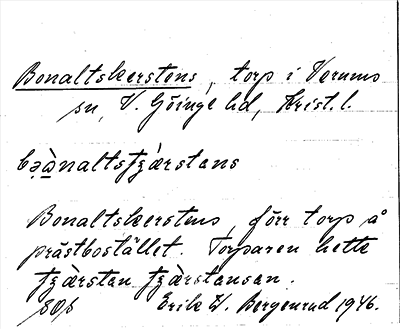 Bonaltskerstens, torp i Verums
sn, V. Göinge hd, Krist. l.
bə̀naltsfʒàrstans
Bonaltskerstens, förr torp å
prästbostället. Torparen hette
fʒàrstan fʒàrstansan.
Erik W. Bergenrud 1946.